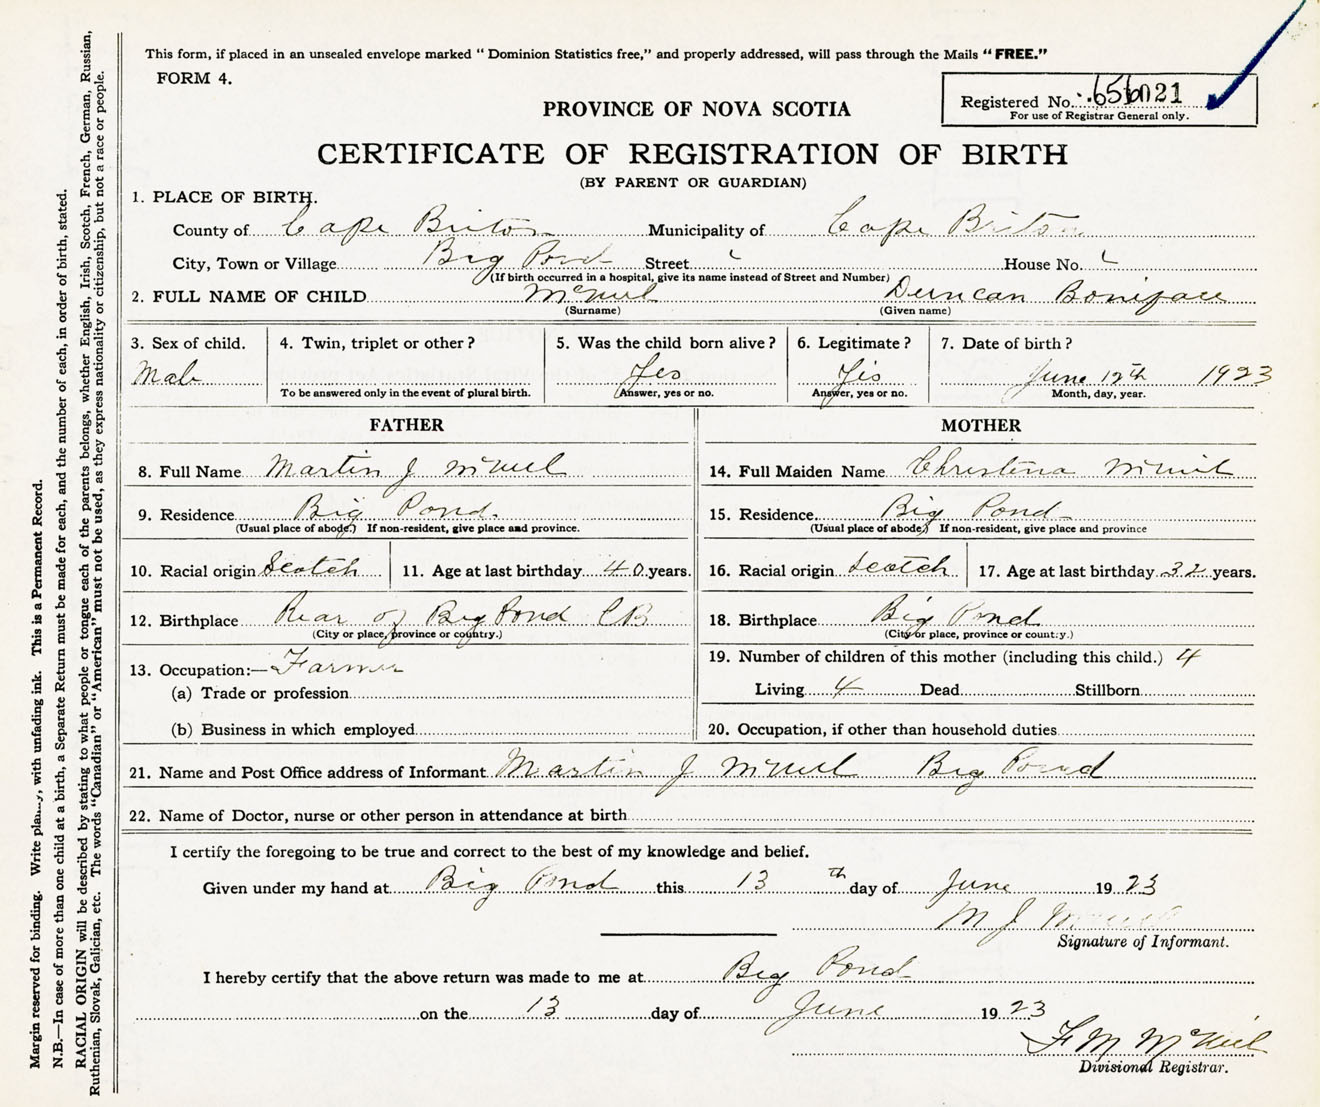 This form, if placed in an unsealed envelope marked " Dominion Statistics free," and properly addressed, will pass through the Mails " FREE."
FORM 4.
Registered No.
For use of Registrar General only.
PROVINCE OF NOVA SCOTIA
CERTIFICATE OF REGISTRATION OF BIRTH
(BY PARENT OR GUARDIAN)
1. PLACE OF BIRTH.
County of Cape Briton Municipality of Cape Briton
City, Town or Village Big Pond Street House No.
(If birth occurred in a hospital, give its name instead of Street and Number)
2. FULL NAME OF CHILD McNeil Duncan Boniface
(Surname) (Given name)
3. Sex of child. 4. Twin, triplet or other ? 5. Was the child born alive ? 6. Legitimate ? 7. Date of birth ?
Male Yes Yes June 12th 1923
To be answered only in the event of plural birth. Answer, yes or no. Answer, yes or no. Month, day, year.
FATHER MOTHER
8. Full Name Martin J McNeil 14. Full Maiden Name Christina McNeil
9. Residence Big Pond. 15. Residence Big Pond
(Usual place of abode.) If non-resident, give place and province. (Usual place of abode.) If non-resident, give place and province
10. Racial origin Scotch 11. Age at last birthday 40 years. 16. Racial origin Scotch 17. Age at last birthday 32 years.
12. Birthplace Rear of Big Pond CB 18. Birthplace Big Pond
(City or place, province or country.) (City or place, province or country.)
13. Occupation:— Farmer 19. Number of children of this mother (including this child.) 4
(a) Trade or profession Living 4 Dead Stillborn
(b) Business in which employed 20. Occupation, if other than household duties
21. Name and Post Office address of Informant Martin J McNeil Big Pond
22. Name of Doctor, nurse or other person in attendance at birth
I certify the foregoing to be true and correct to the best of my knowledge and belief.
Given under my hand at Big Pond this 13 th day of June 1923
M J McNeil
Signature of Informant.
I hereby certify that the above return was made to me at Big Pond
on the 13 day of June 1923
F M McNeil
Divisional Registrar.
Margin reserved for binding. Write plainly, with unfading ink. This is a Permanent Record.
N.B.—In case of more than one child at a birth, a Separate Return must be made for each, and the number of each, in order of birth, stated.
RACIAL ORIGIN will be described by stating to what people or tongue each of the parents belongs, whether English, Irish, Scotch, French, German, Russian,
Ruthenian, Slovak, Galician, etc. The words "Canadian" or "American" must not be used, as they express nationality or citizenship, but not a race or people.